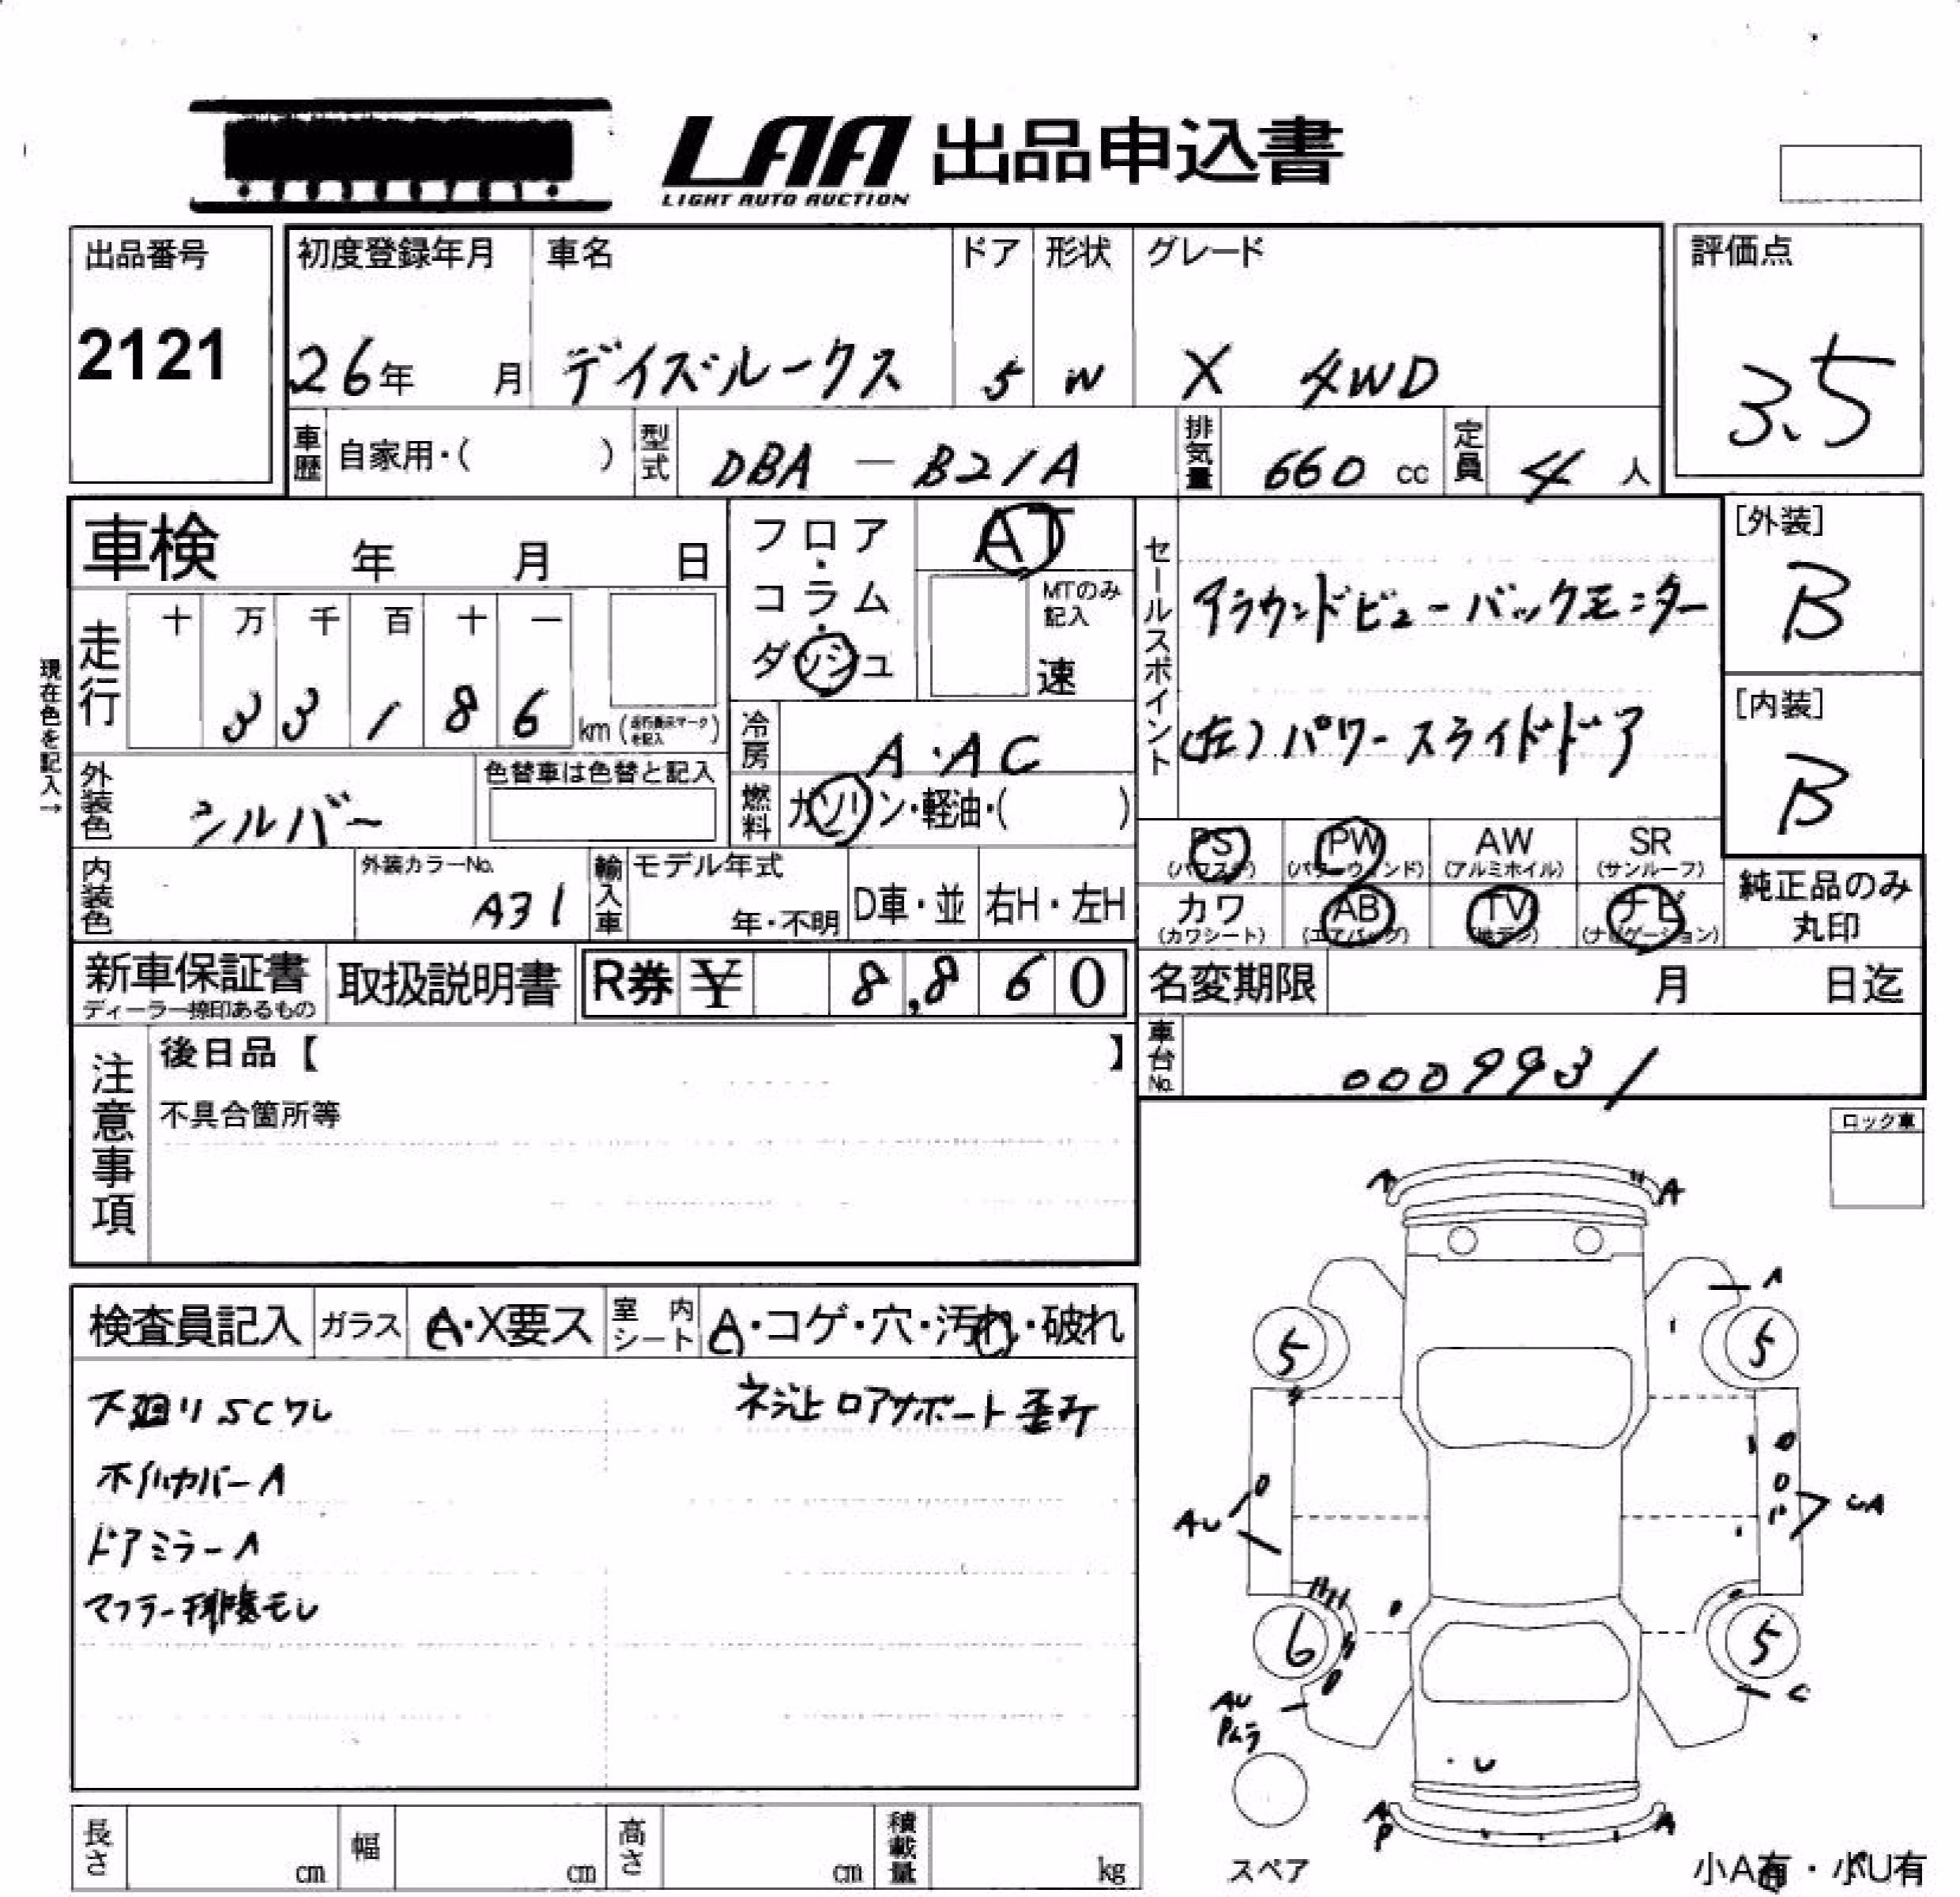 LAA 出品申込書
LIGHT AUTO AUCTION
出品番号
2121
初度登録年月 車名 ドア 形状 グレード
26年 月 デイズルークス 5 W X 4WD
評価点
3.5
車歴 自家用・( ) 型式 DBA - B21A 排気量 660 cc 定員 4 人
車検 年 月 日
フロア・コラム・ダッシュ
AT
MTのみ記入
速
セールスポイント
アラウンドビューバックモニター
(左)パワースライドドア
[外装]
B
[内装]
B
現在色を記入→
走行
十 万 千 百 十 一
3 3 1 8 6 km (走行表示マークを記入)
冷房 A・AC
外装色 シルバー
色替車は色替と記入
燃料 ガソリン・軽油・( )
PS (パワステ) PW (パワーウィンド) AW (アルミホイル) SR (サンルーフ)
カワ (カワシート) AB (エアバッグ) TV (地デジ) ナビ (ナビゲーション)
純正品のみ
丸印
内装色 外装カラーNo. A31
輸入車 モデル年式 年・不明 D車・並 右H・左H
新車保証書
ディーラー捺印あるもの
取扱説明書
R券 ¥ 8,860
名変期限 月 日迄
車台No. 0009931
注意事項
後日品【 】
不具合箇所等
ロック車
検査員記入 ガラス A・X要ス 室内シート A・コゲ・穴・汚れ・破れ
下廻りSCワレ
ネジ止 ロアサポート歪み
ホイルカバーA
ドアミラーA
マフラー排気モレ
A A
A
5 5
AU UA
6 5
AU
Pムラ
C
U
A
P
A
スペア
小A有・小U有
長さ cm 幅 cm 高さ cm 積載量 kg